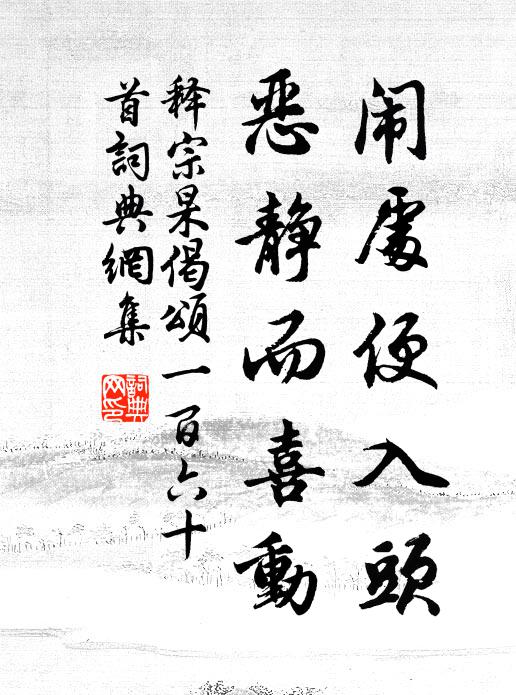 闹處便入頭
恶静而喜動
释宗杲偈頌一百六十
首詞典網集
詞典
网印